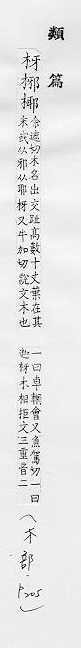 類篇
枒椰
余遮切木名出交趾高數十丈葉在其
末或从邪从耶枒又牛加切說文木也
一曰車輞會又魚駕切一曰
枒木相拒文三重音二
(木部 P205)